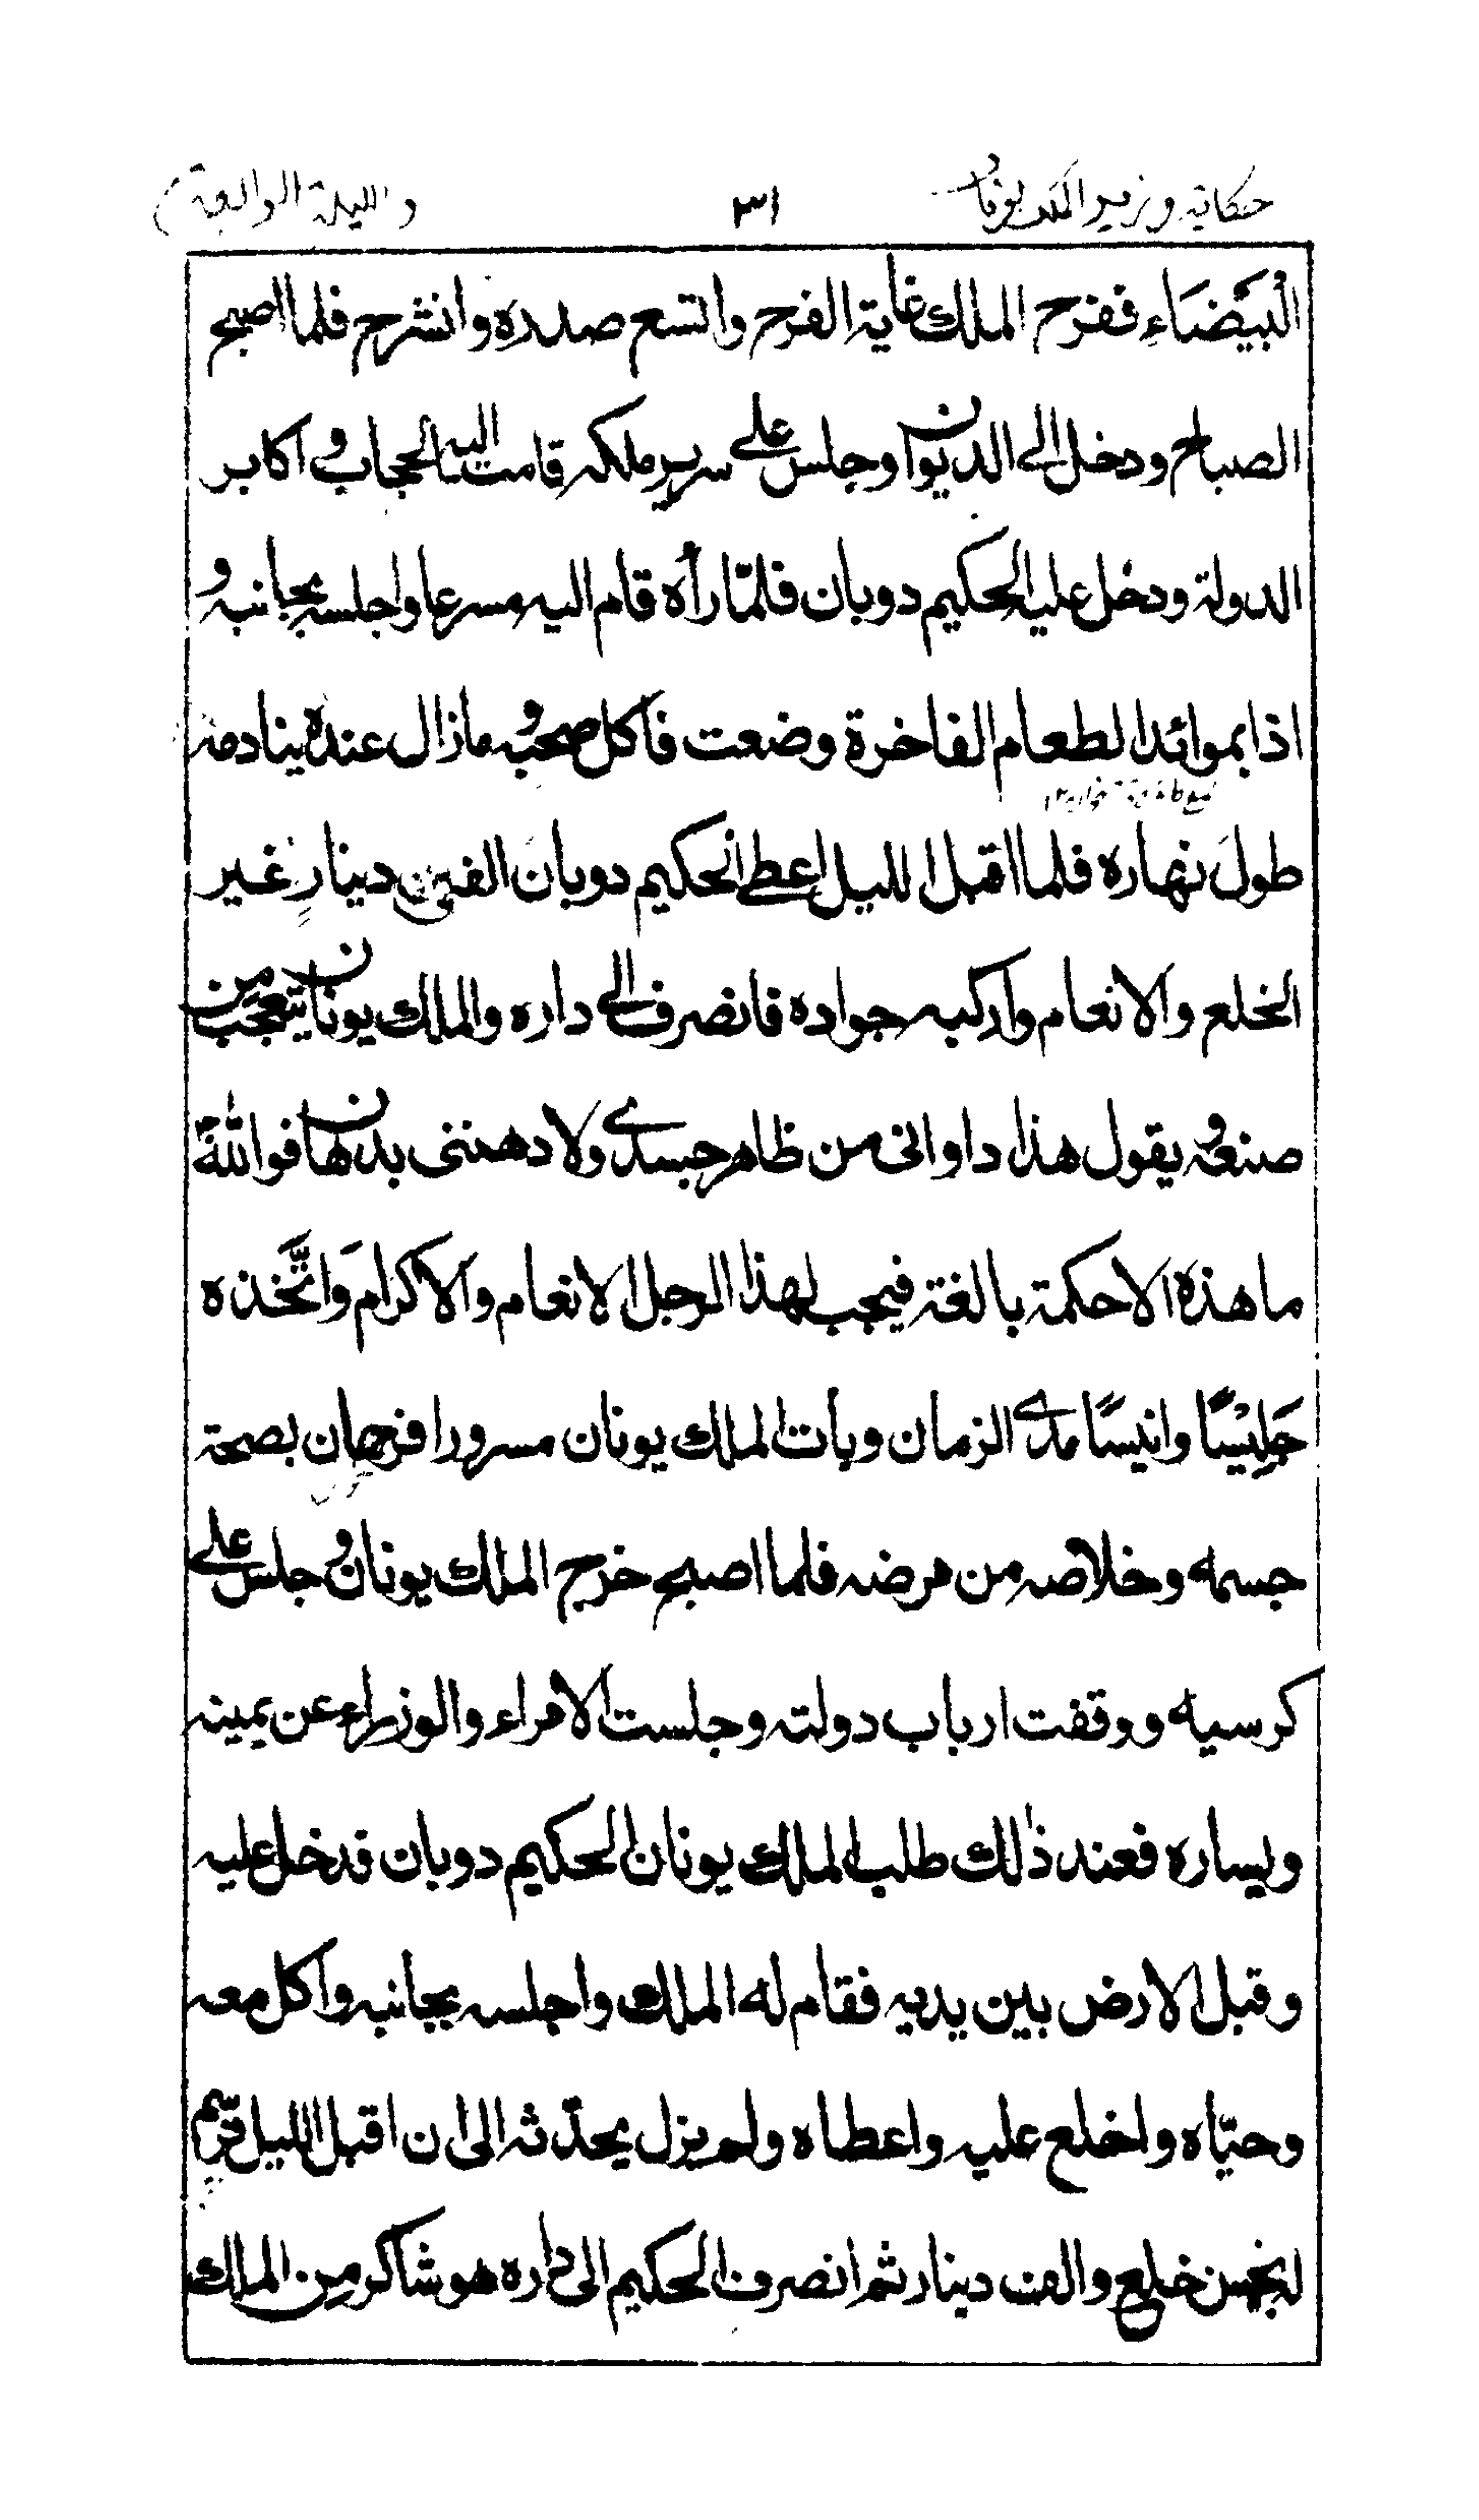 حكاية وزير الملك يونان ٣١ والليلة الرابعة
البَيضَاءِ ففرح الملك غاية الفرح واتسع صدره وانشرح فلما اصبح
الصباح ودخل الى الديوان وجلس على سرير ملكه قامت اليه الحجاب و اكابر
الدولة ودخل عليه الحكيم دوبان فلمّا رأه قام اليه مسرعا واجلسه بجانبه و
اذا بموائد الطعام الفاخرة وضعت فاكل صحبته و مازال عنده ينادمه
طولَ نهاره فلما اقبل الليل اعطى الحكيم دوبان الفي دينارٍ غير
الخلع والانعام واركبه جواده فانصرف الى داره والملك يونان يتعجب من
صنعه و يقول هذا داوانى من ظاهر جسدى ولا دهننى بدهان فوالله
ما هذه الا حكمة بالغة فيجب لهذا الرجل الانعام والاكرام وَاتَّخذه
جَليْسًا وانيسًا مدى الزمان وبات الملك يونان مسرورا فرحان بصحة
جسمه وخلاصه من مرضه فلما اصبح خرج الملك يونان و جلس على
كرسيه ووقفت ارباب دولته وجلست الامراء والوزراء عن يمينه
ويساره فعند ذلك طلب الملك يونان الحكيم دوبان فدخل عليه
وقبل الارض بين يديه فقام له الملك واجلسه بجانبه واكل معه
وحيّاه واخلع عليه واعطاه ولم يزل يحدّثه الى ان اقبل الليل فرسم
له بخمس خلع والف دينار ثم انصرف الحكيم الى داره و هو شاكر من الملك